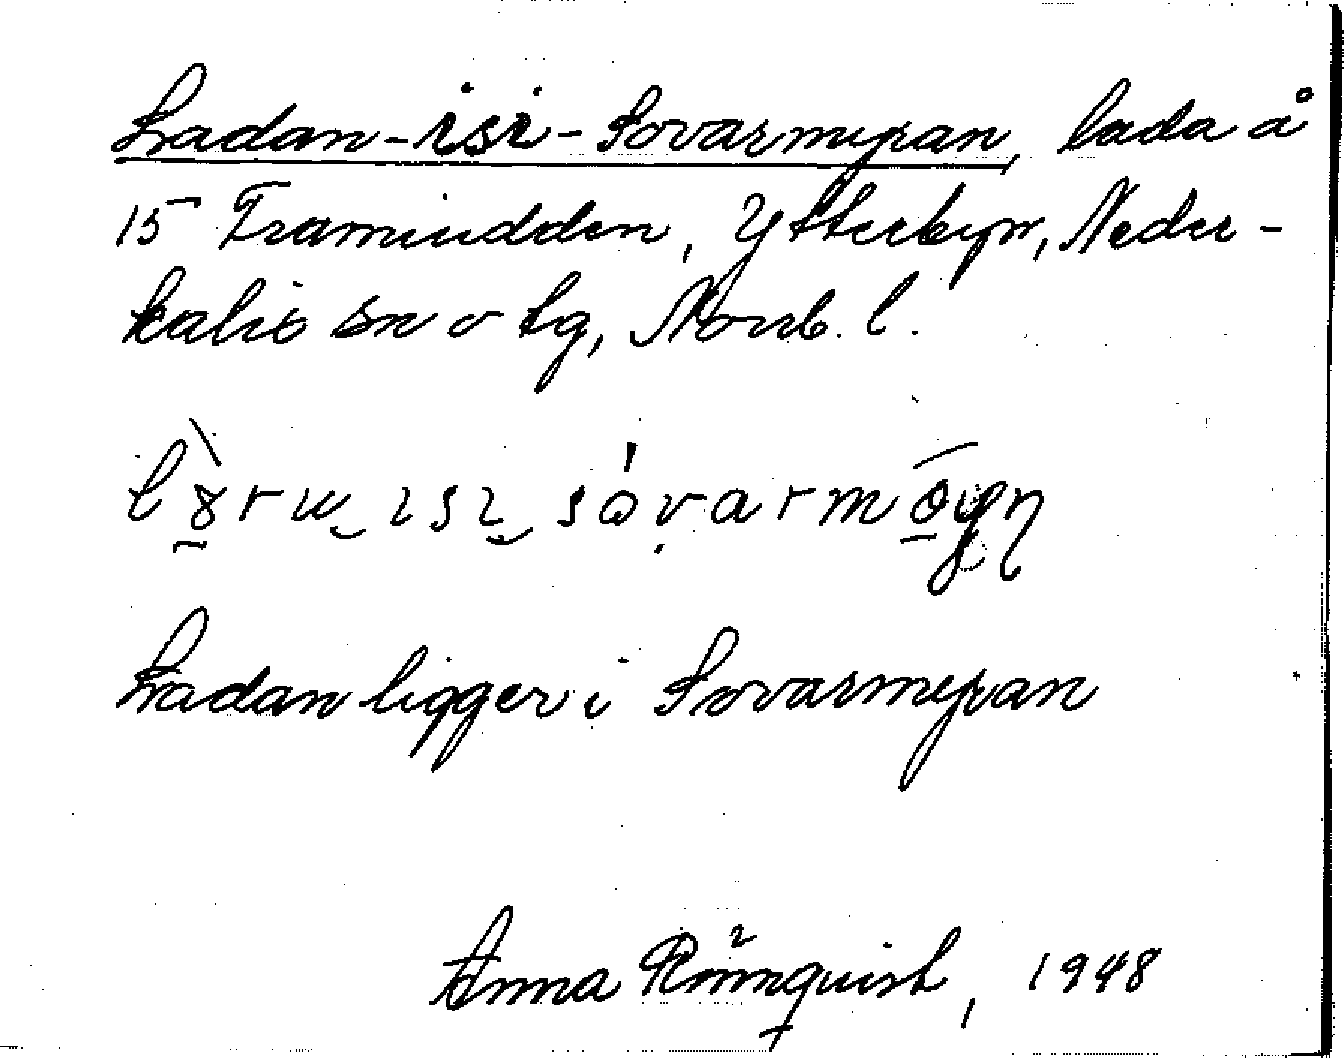 Ladan-isi-Sovarmyran, lada å
15 Framiudden, Ytterbyn, Neder-
kalix sn o tg, Norrb. l.
Ladan ligger i Sovarmyran
Anna Rönnquist, 1948